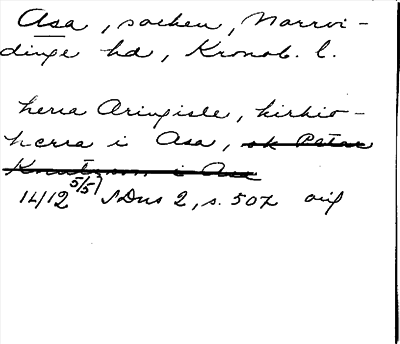 Asa, socken, Norrvi-
dinge hd, Kronob. l.
herra Aringisle, kirkio-
herra i Asa, ok Petar
Knutzson i Asa
1412 5/5) SDns 2, s. 507 orig